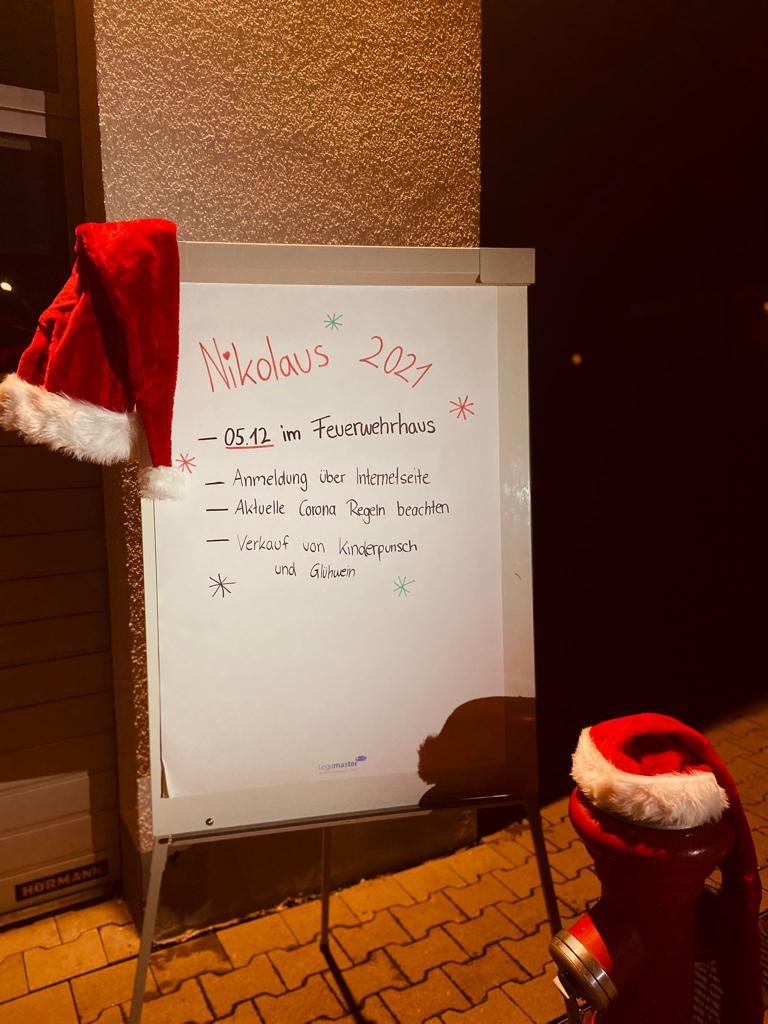 Nikolaus 2021
– 05.12 im Feuerwehrhaus
– Anmeldung über Internetseite
– Aktuelle Corona Regeln beachten
– Verkauf von Kinderpunsch
und Glühwein
Legamaster
HÖRMANN